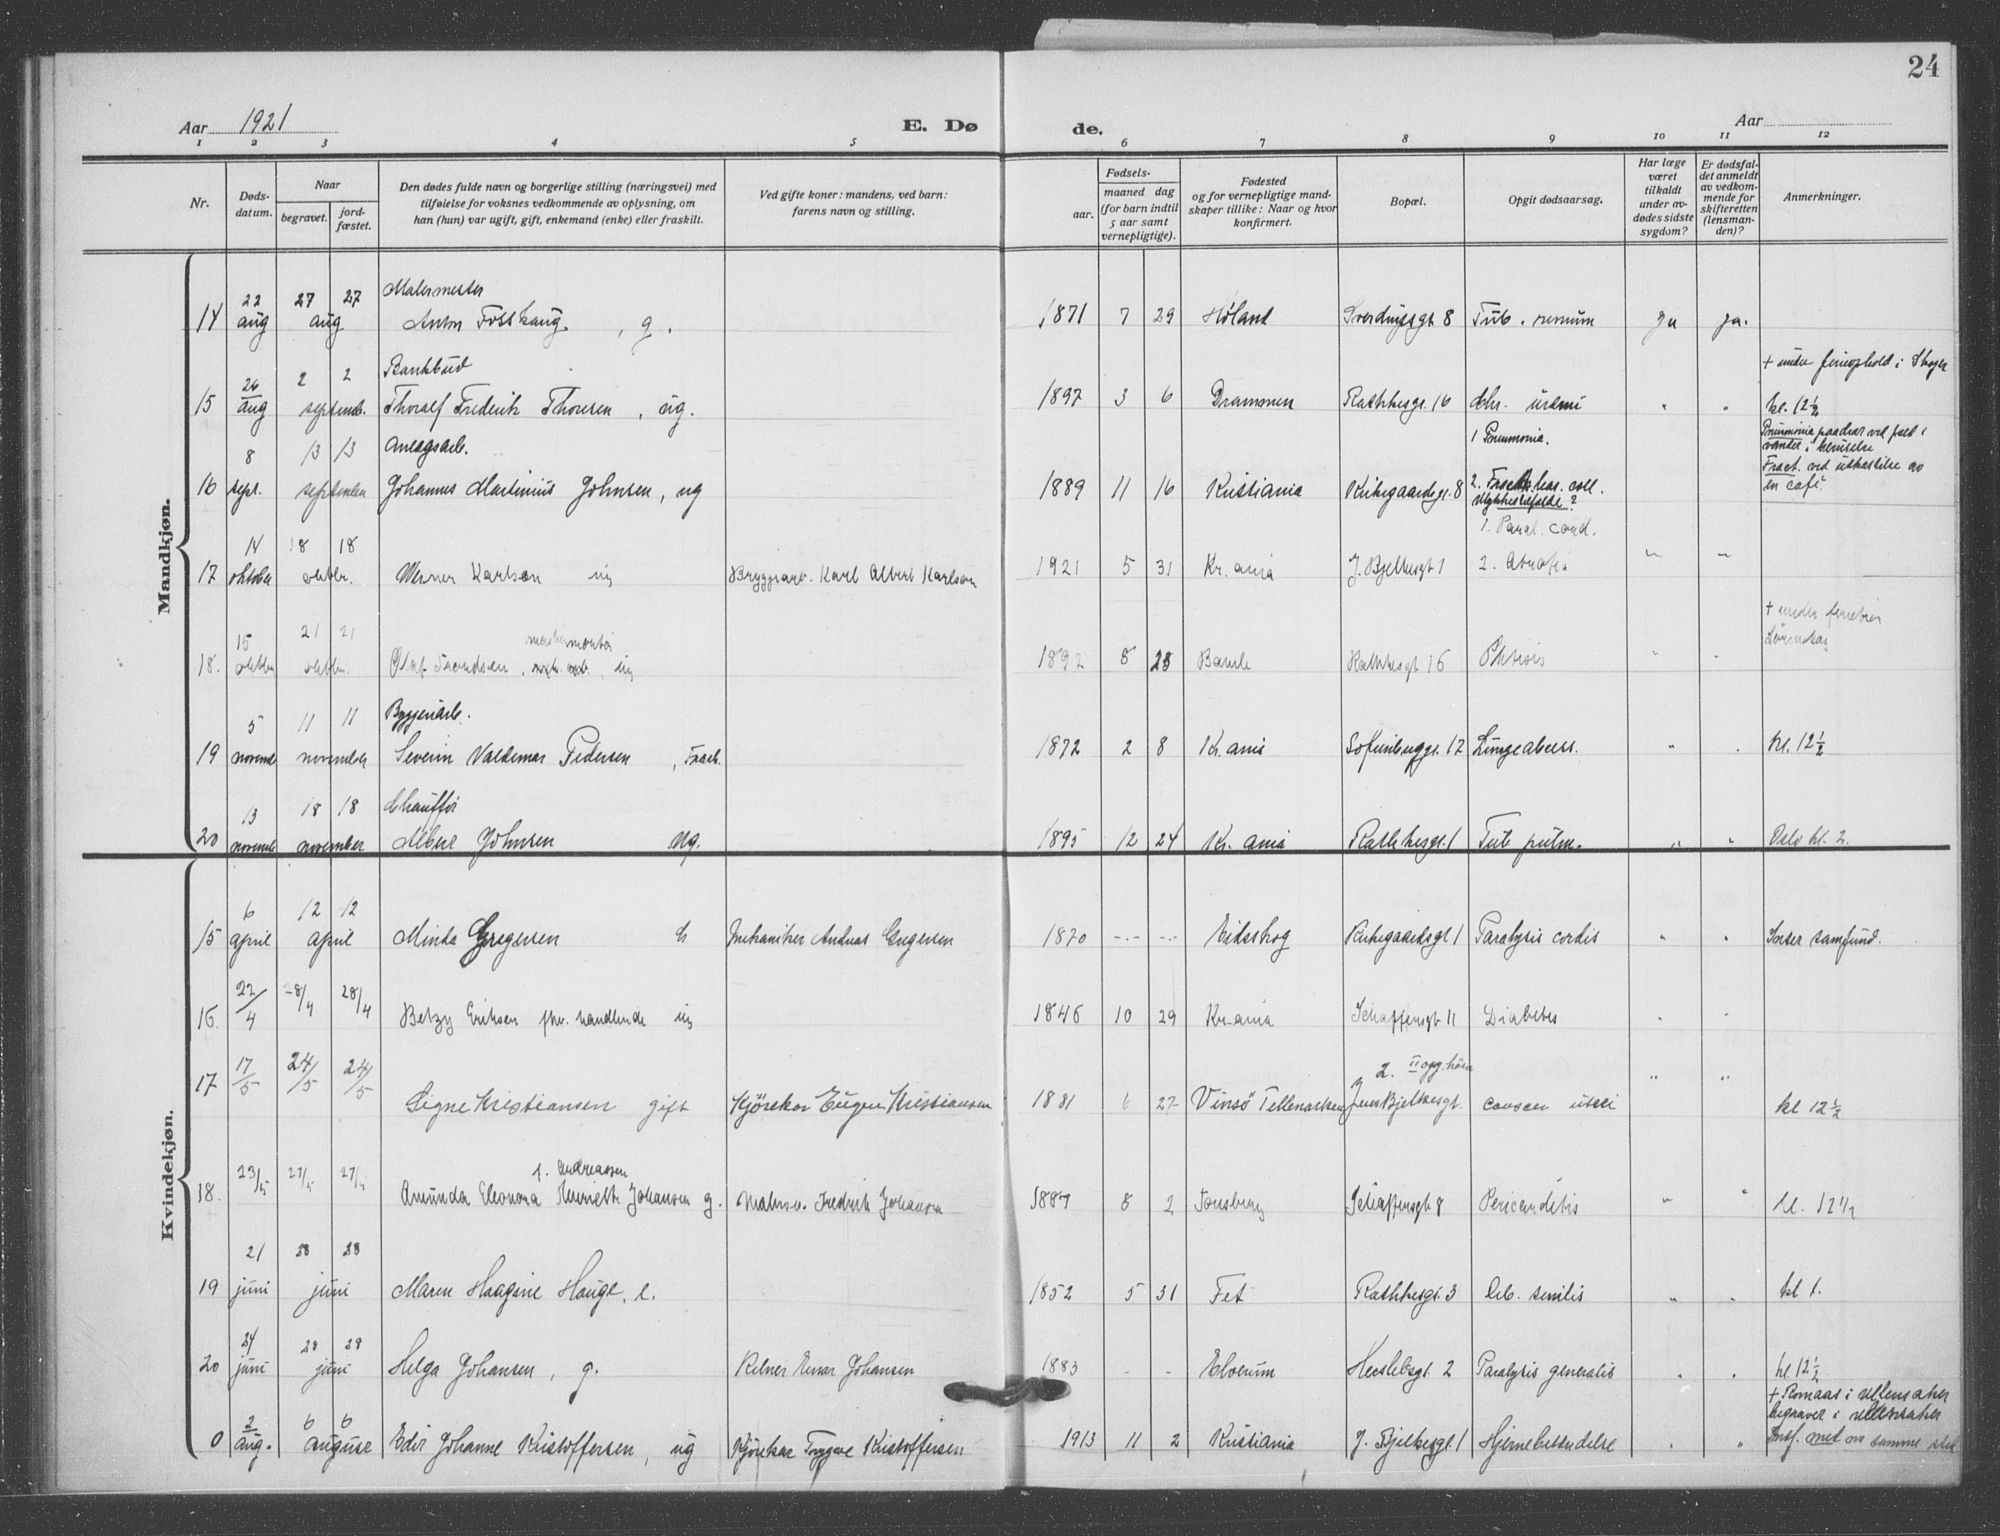 24
Aar 1921 E. Dø de. Aar
1 2 3 4 5 6 7 8 9 10 11 12
Nr.
Døds-
datum.
Naar
begravet.
jord-
fæstet.
Den dødes fulde navn og borgerlige stilling (næringsvei) med
tilføielse for voksnes vedkommende av oplysning, om
han (hun) var ugift, gift, enkemand (enke) eller fraskilt.
Ved gifte koner: mandens, ved barn:
farens navn og stilling.
Fødsels-
aar.
maaned dag
(for barn indtil
5 aar samt
vernepligtige).
Fødested
og for vernepligtige mand-
skaper tillike: Naar og hvor
konfirmert.
Bopæl.
Opgit dødsaarsag.
Har læge
været
tilkaldt
under av-
dødes sidste
sygdom?
Er dødsfal-
det anmeldt
av vedkom-
mende for
skifteretten
(lensman-
den)?
Anmerkninger.
Mandkjøn.
22 27 27 Malermester
14 aug aug Anton Fosshaug, g. 1871 7 29 Høland Sverdrupsgt 8 Tub. renum ja ja.
+ under ferieophold i Skoger
26 2 2 Bankbud
15 aug septembr. Thoralf Fredrik Thoresen, ug. 1897 3 6 Drammen Rathkesgt. 16 Chr. urämi " " kl. 12½
8 13 13 Anlegsarb. 1 Pneumonia. Pneumonia paadrat ved fald i
vandet i beruselse
16 sept. september Johannes Martinius Johnsen, ug 1889 11 16 Kristiania Kirkegaardsgt. 8 2. Fract. bas. coll. Fract. ved utkastelse av
Ulykkestilfælde? en café.
14 18 18 1. Paral. cord.
17 oktober oktbr. Werner Karlsen ug Bryggearb. Karl Albert Karlsen 1921 5 31 Kr. ania J. Bjelkesgt 1 2. Atrofia " "
+ under ferietur
15 21 21 maskinmontør Lørenskog
18. oktbr oktbr. Olaf Trondsen, ug 1892 8 28 Bamle Rathkesgt 16 Phtisis " "
5 11 11 Bryggeriarb.
19 novembr november Severin Valdemar Pedersen, Frask. 1872 2 8 Kr. ania Sofienberggt. 17 Lungeabsces. " " kl. 12½
13 18 18 Chauffør
20 novembr november Albert Johnsen ug. 1895 12 24 Kr. ania Rathkesgt. 1 Tub. pulm. " " Oslo kl. 2.
Kvindekjøn.
6 12 12
15 april april Minda Gregersen g Mekaniker Andreas Gregersen 1870 -.- -.- Eidsskog Kirkegaardsgt 1 Paralysis cordis " " Sæter samfund.
22/4 28/4 28/4
16. Betzy Eriksen fhv. handlende ug 1846 10 29 Kr. ania Schaffersgt 11 Diabetes " "
17/5 24/5 24/5 2. II opg. høire
17 Signe Kristiansen gift Kjørekar Eugen Kristiansen 1881 6 27 Vinsø Tellemarken Jens Bjelkesgt. cancer uteri " " kl 12½
23/5 27/5 27/5 f. Andreassen
18. Amunda Eleonora Henriette Johansen g. Malersv. Fredrik Johansen 1887 8 2 Tønsberg Schaffersgt 8 Pericarditis " " kl. 12½
21 28 28
19 juni juni Maren Haagine Hauge. e. 1852 5 31 Fet Rathkesgt. 3 Deb. senilis " " kl 1.
24 28 28
20 juni juni Helga Johansen, g. Kelner Einar Johansen 1883 - - Elverum Heslebsgt. 2 Paralysis generalis " " kl 12½
+ Romaas i Ullensaker
2 6 6 begravet i Ullensaker
0 aug. august Edit Johanne Kristoffersen, ug Kjørekar Trygve Kristoffersen 1913 11 2 Kristiania J. Bjelkesgt. 1 Hjernebetændelse " " Indf. med no samme sted